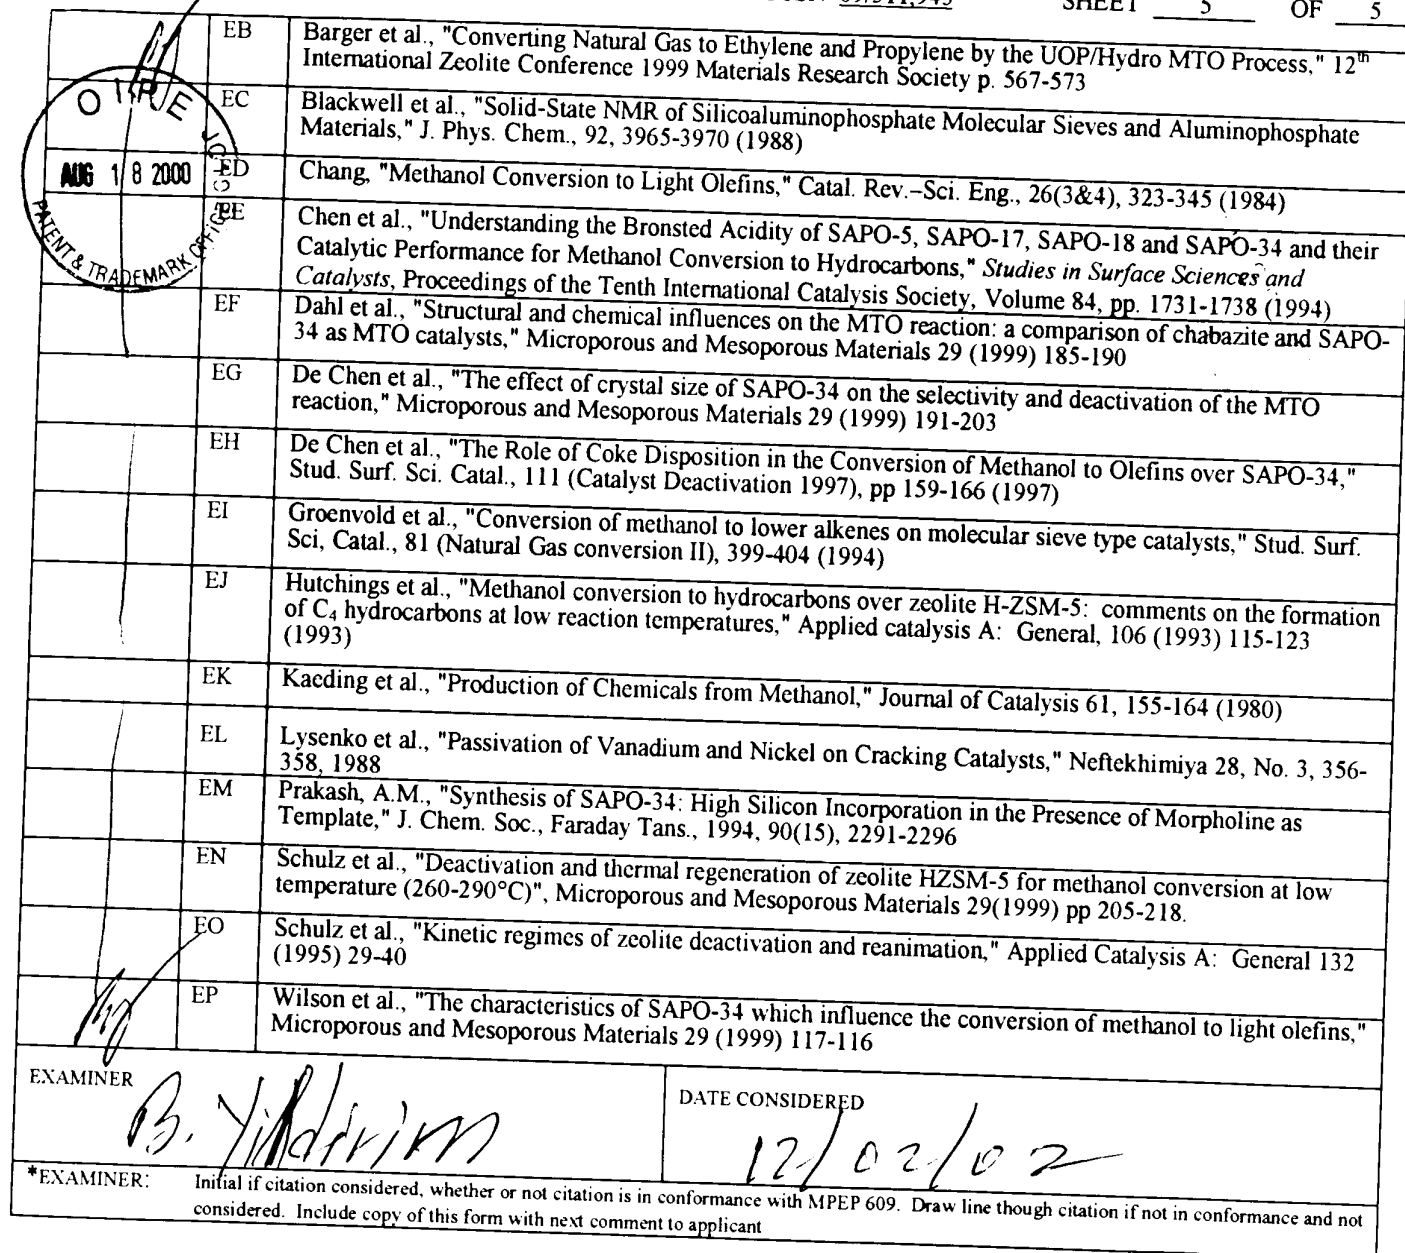 SHEET 5 OF 5
EB Barger et al., "Converting Natural Gas to Ethylene and Propylene by the UOP/Hydro MTO Process," 12th
International Zeolite Conference 1999 Materials Research Society p. 567-573
O I P E
EC Blackwell et al., "Solid-State NMR of Silicoaluminophosphate Molecular Sieves and Aluminophosphate
Materials," J. Phys. Chem., 92, 3965-3970 (1988)
AUG 18 2000
PATENT & TRADEMARK OFFICE
ED Chang, "Methanol Conversion to Light Olefins," Catal. Rev.–Sci. Eng., 26(3&4), 323-345 (1984)
EE Chen et al., "Understanding the Bronsted Acidity of SAPO-5, SAPO-17, SAPO-18 and SAPO-34 and their
Catalytic Performance for Methanol Conversion to Hydrocarbons," Studies in Surface Sciences and
Catalysts, Proceedings of the Tenth International Catalysis Society, Volume 84, pp. 1731-1738 (1994)
EF Dahl et al., "Structural and chemical influences on the MTO reaction: a comparison of chabazite and SAPO-
34 as MTO catalysts," Microporous and Mesoporous Materials 29 (1999) 185-190
EG De Chen et al., "The effect of crystal size of SAPO-34 on the selectivity and deactivation of the MTO
reaction," Microporous and Mesoporous Materials 29 (1999) 191-203
EH De Chen et al., "The Role of Coke Disposition in the Conversion of Methanol to Olefins over SAPO-34,"
Stud. Surf. Sci. Catal., 111 (Catalyst Deactivation 1997), pp 159-166 (1997)
EI Groenvold et al., "Conversion of methanol to lower alkenes on molecular sieve type catalysts," Stud. Surf.
Sci, Catal., 81 (Natural Gas conversion II), 399-404 (1994)
EJ Hutchings et al., "Methanol conversion to hydrocarbons over zeolite H-ZSM-5: comments on the formation
of C4 hydrocarbons at low reaction temperatures," Applied catalysis A: General, 106 (1993) 115-123
(1993)
EK Kaeding et al., "Production of Chemicals from Methanol," Journal of Catalysis 61, 155-164 (1980)
EL Lysenko et al., "Passivation of Vanadium and Nickel on Cracking Catalysts," Neftekhimiya 28, No. 3, 356-
358, 1988
EM Prakash, A.M., "Synthesis of SAPO-34: High Silicon Incorporation in the Presence of Morpholine as
Template," J. Chem. Soc., Faraday Tans., 1994, 90(15), 2291-2296
EN Schulz et al., "Deactivation and thermal regeneration of zeolite HZSM-5 for methanol conversion at low
temperature (260-290°C)", Microporous and Mesoporous Materials 29(1999) pp 205-218.
EO Schulz et al., "Kinetic regimes of zeolite deactivation and reanimation," Applied Catalysis A: General 132
(1995) 29-40
EP Wilson et al., "The characteristics of SAPO-34 which influence the conversion of methanol to light olefins,"
Microporous and Mesoporous Materials 29 (1999) 117-116
EXAMINER B. Yildirim
DATE CONSIDERED 12/02/02
*EXAMINER: Initial if citation considered, whether or not citation is in conformance with MPEP 609. Draw line though citation if not in conformance and not
considered. Include copy of this form with next comment to applicant